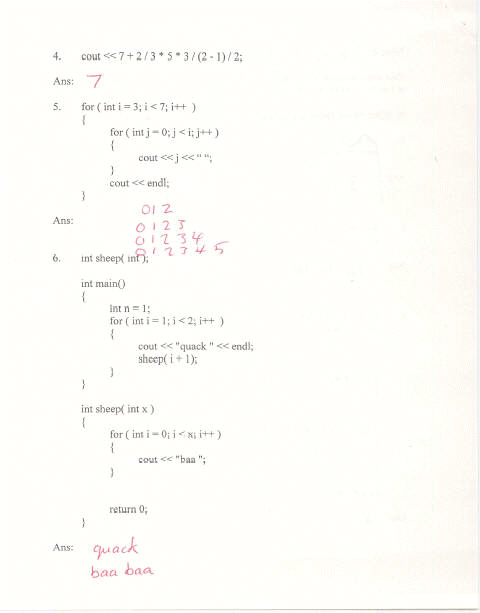 4. cout << 7 + 2 / 3 * 5 * 3 / (2 - 1) / 2;
Ans: 7
5. for ( int i = 3; i < 7; i++ )
{
for ( int j = 0; j < i; j++ )
{
cout << j << " ";
}
cout << endl;
}
0 1 2
Ans:
0 1 2 3
0 1 2 3 4
0 1 2 3 4 5
6. int sheep( int );
int main()
{
int n = 1;
for ( int i = 1; i < 2; i++ )
{
cout << "quack " << endl;
sheep( i + 1);
}
}
int sheep( int x )
{
for ( int i = 0; i < x; i++ )
{
cout << "baa ";
}
return 0;
}
Ans: quack
baa baa